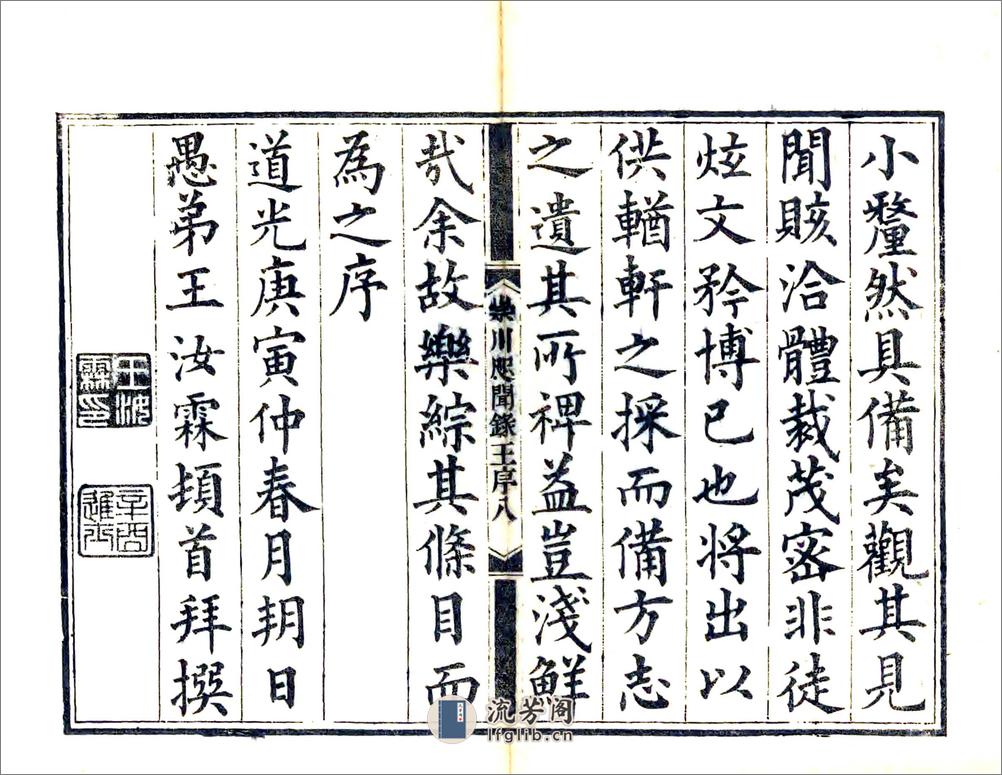 小釐然具備矣觀其見
聞賅洽體裁茂密非徒
炫文矜博已也將出以
供輶軒之採而備方志
之遺其所裨益豈淺鮮
崇川咫聞錄王序八
哉余故樂綜其條目而
為之序
道光庚寅仲春月朔日
愚弟王汝霖頓首拜撰
王汝霖印
辛酉進士
流芳阁
lfglib.cn